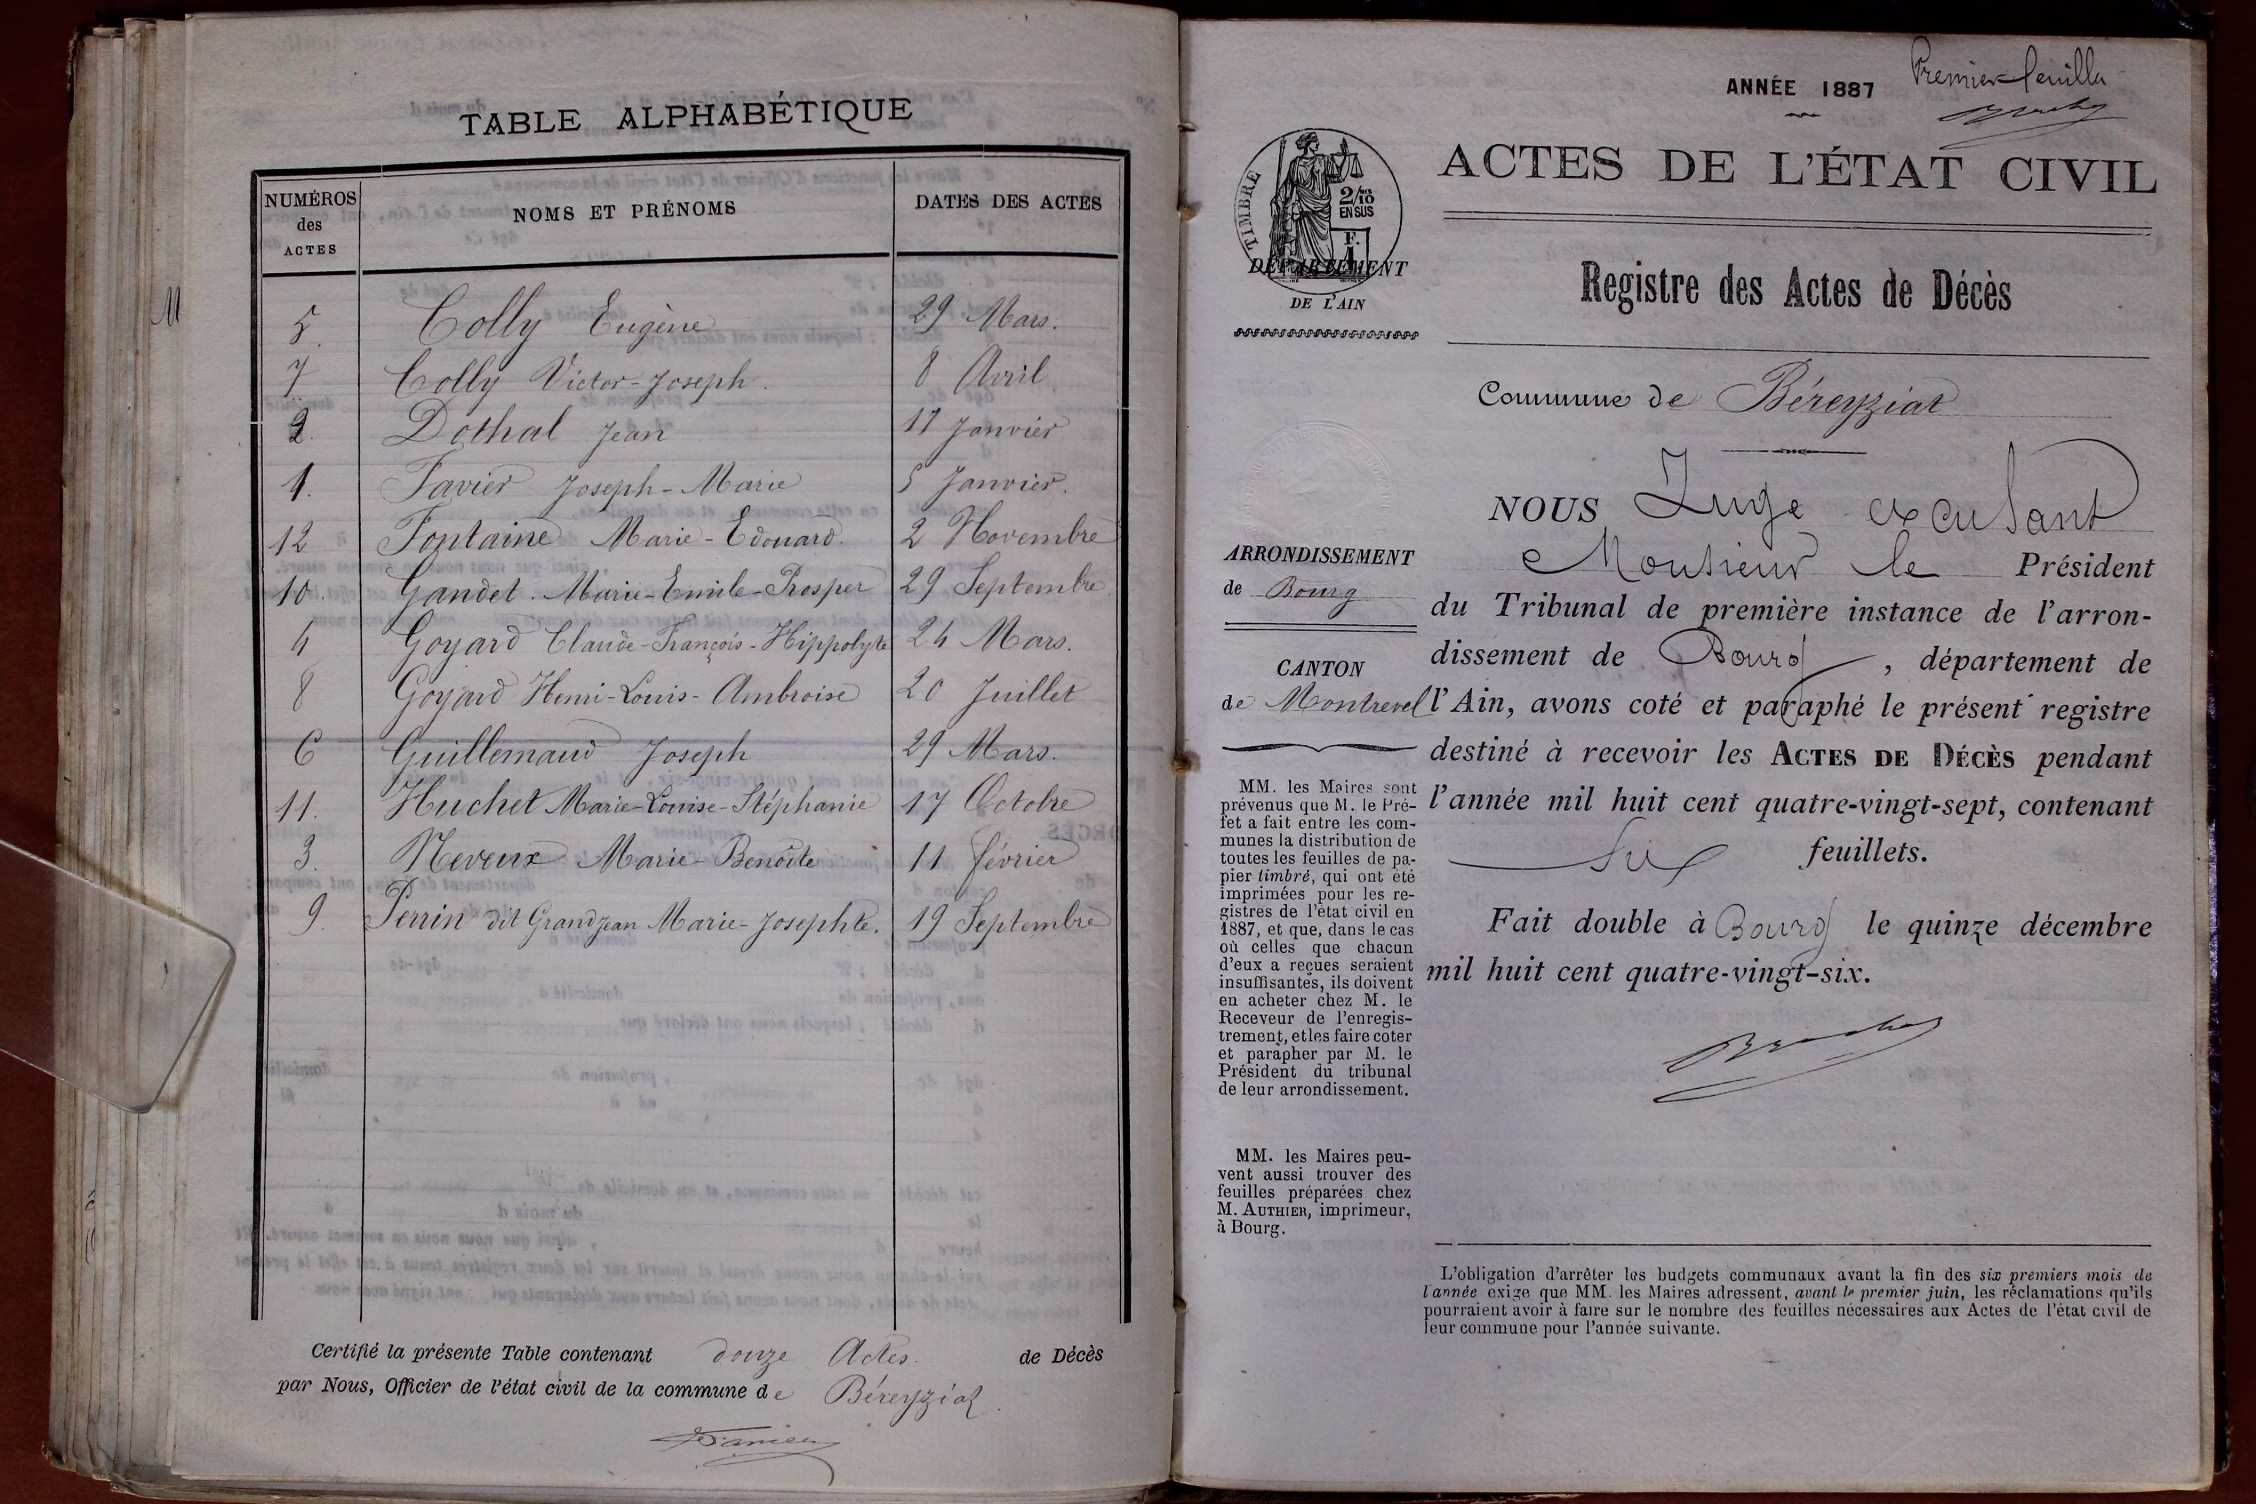 TABLE ALPHABÉTIQUE
NUMÉROS des ACTES NOMS ET PRÉNOMS DATES DES ACTES
5. Colly Eugène 29 Mars.
7 Colly Victor-Joseph. 8 Avril
2. Dothal Jean 17 Janvier
1. Favier Joseph-Marie 5 Janvier.
12 Fontaine Marie-Edouard. 2 Novembre
10. Gandet. Marie-Emile-Prosper 29 Septembre.
4 Goyard Claude-François-Hippolyte 24 Mars.
8 Goyard Henri-Louis-Ambroise 20 Juillet
6 Guillemaud Joseph 29 Mars.
11. Huchet Marie-Louise-Stéphanie 17 Octobre
3. Neveux Marie-Benoîte 11 février
9. Perrin dit Grandjean Marie-Josephte. 19 Septembre
Certifié la présente Table contenant douze Actes. de Décès
par Nous, Officier de l'état civil de la commune de Béreyziat.
M
ANNÉE 1887
Premier feuillet
ACTES DE L'ÉTAT CIVIL
TIMBRE
2/10 EN SUS
F. 1
DÉPARTEMENT
DE L'AIN
Registre des Actes de Décès
Commune de Béreyziat
ARRONDISSEMENT
de Bourg
CANTON
de Montrevel
MM. les Maires sont
prévenus que M. le Pré-
fet a fait entre les com-
munes la distribution de
toutes les feuilles de pa-
pier timbré, qui ont été
imprimées pour les re-
gistres de l'état civil en
1887, et que, dans le cas
où celles que chacun
d'eux a reçues seraient
insuffisantes, ils doivent
en acheter chez M. le
Receveur de l'enregis-
trement, et les faire coter
et parapher par M. le
Président du tribunal
de leur arrondissement.
MM. les Maires peu-
vent aussi trouver des
feuilles préparées chez
M. AUTHIER, imprimeur,
à Bourg.
NOUS Juge excusant
Monsieur le Président
du Tribunal de première instance de l'arron-
dissement de Bourg, département de
l'Ain, avons coté et paraphé le présent registre
destiné à recevoir les ACTES DE DÉCÈS pendant
l'année mil huit cent quatre-vingt-sept, contenant
six feuillets.
Fait double à Bourg le quinze décembre
mil huit cent quatre-vingt-six.
L'obligation d'arrêter les budgets communaux avant la fin des six premiers mois de
l'année exige que MM. les Maires adressent, avant le premier juin, les réclamations qu'ils
pourraient avoir à faire sur le nombre des feuilles nécessaires aux Actes de l'état civil de
leur commune pour l'année suivante.